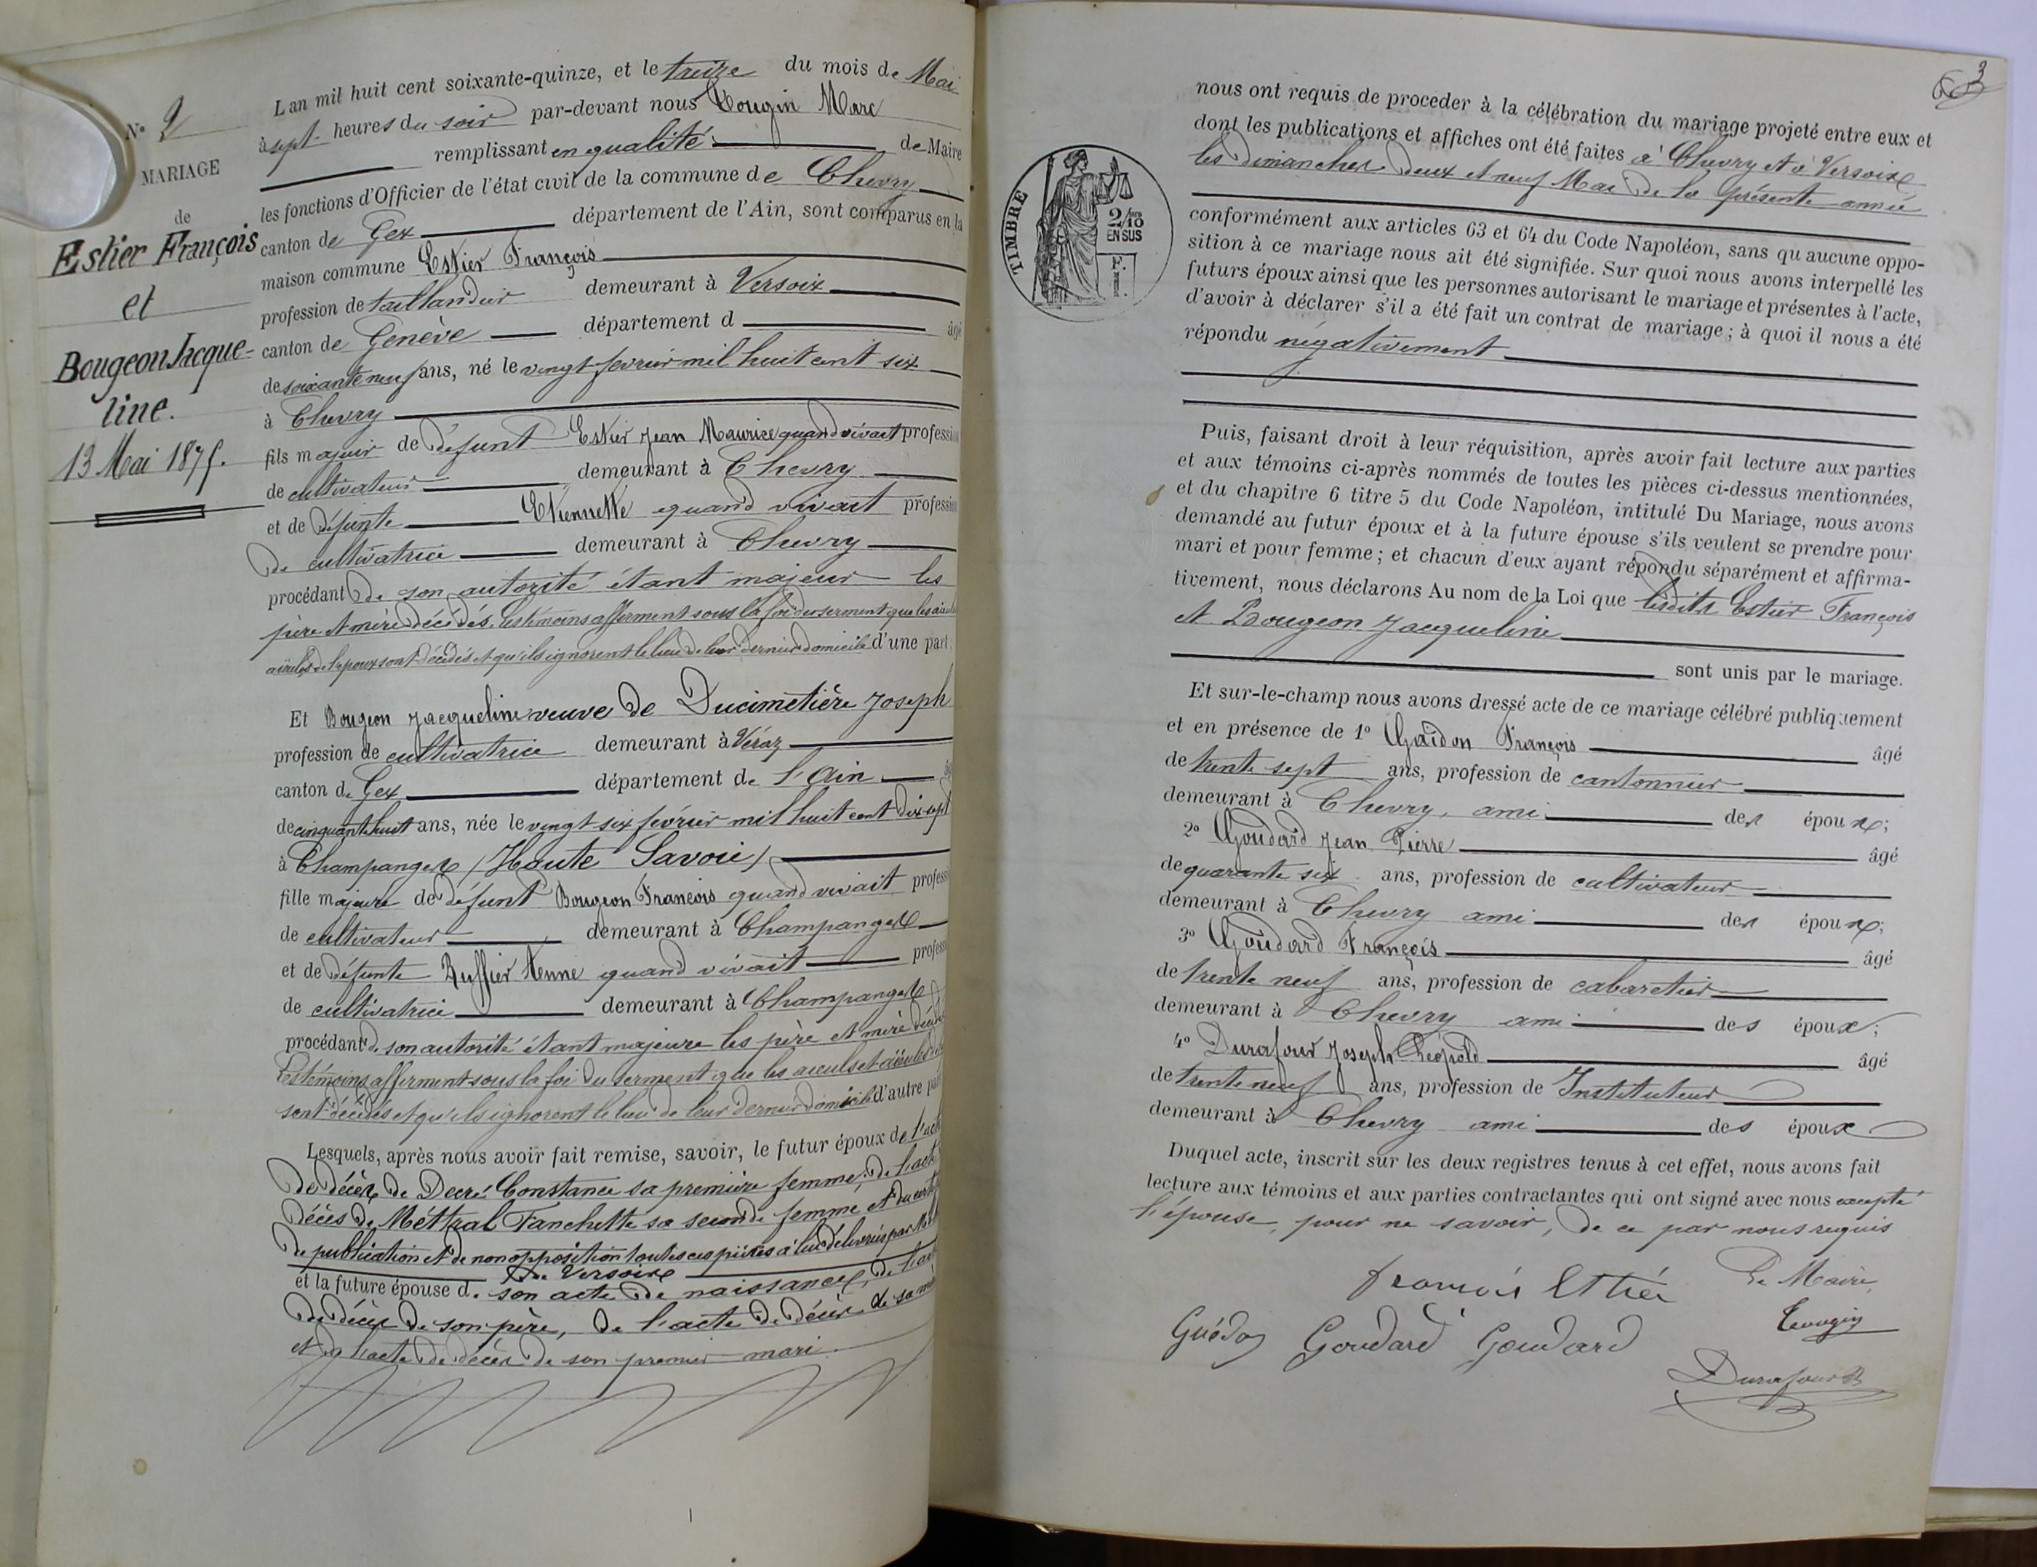 N° 2
MARIAGE
de
Estier François
et
Bougeon Jacque-
line.
13 Mai 1875.
L'an mil huit cent soixante-quinze, et le treize du mois de Mai
à sept heures du soir par-devant nous Tougin Marc
remplissant en qualité de Maire
les fonctions d'Officier de l'état civil de la commune de Chevry
canton de Gex département de l'Ain, sont comparus en la
maison commune Estier François
profession de taillandier demeurant à Versoix
canton de Genève département d âgé
de soixante neuf ans, né le vingt février mil huit cent six
à Chevry
fils majeur de défunt Estier Jean Maurice quand vivait profession
de cultivateur demeurant à Chevry
et de défunte Etiennette quand vivait profession
de cultivatrice demeurant à Chevry
procédant de son autorité étant majeur les
père et mère décédés. Les témoins afferment sous la foi du serment que les aïeuls
aïeules de l'époux sont décédés et qu'ils ignorent le lieu de leur dernier domicile d'une part.
Et Bougeon Jacqueline veuve de Ducimetière Joseph
profession de cultivatrice demeurant à Véraz
canton de Gex département de l'Ain
de cinquante huit ans, née le vingt six février mil huit cent dix sept
à Champanges (Haute Savoie)
fille majeure de défunt Bougeon François quand vivait profess
de cultivateur demeurant à Champanges
et de défunte Ruffier Anne quand vivait profess
de cultivatrice demeurant à Champanges
procédant de son autorité étant majeure les père et mère décédés
Les témoins afferment sous la foi du serment que les aïeuls et aïeules
sont décédés et qu'ils ignorent le lieu de leur dernier domicile d'autre part
Lesquels, après nous avoir fait remise, savoir, le futur époux de l'acte
de décès de Decré Constance sa première femme, de l'acte
décès de Méttral Fanchette sa seconde femme et du
de publication et de non opposition toutes ces pièces à lui délivrées par
de Versoix
et la future épouse d. son acte de naissance, de l'acte
de décès de son père, de l'acte de décès de sa mère
et de l'acte de décès de son premier mari.
3
nous ont requis de proceder à la célébration du mariage projeté entre eux et
dont les publications et affiches ont été faites à Chevry et à Versoix
les dimanches deux et neuf Mai de la présente année
TIMBRE
2/10
EN SUS
F.
1.
conformément aux articles 63 et 64 du Code Napoléon, sans qu'aucune oppo-
sition à ce mariage nous ait été signifiée. Sur quoi nous avons interpellé les
futurs époux ainsi que les personnes autorisant le mariage et présentes à l'acte,
d'avoir à déclarer s'il a été fait un contrat de mariage ; à quoi il nous a été
répondu négativement
Puis, faisant droit à leur réquisition, après avoir fait lecture aux parties
et aux témoins ci-après nommés de toutes les pièces ci-dessus mentionnées,
et du chapitre 6 titre 5 du Code Napoléon, intitulé Du Mariage, nous avons
demandé au futur époux et à la future épouse s'ils veulent se prendre pour
mari et pour femme ; et chacun d'eux ayant répondu séparément et affirma-
tivement, nous déclarons Au nom de la Loi que lesdits Estier François
et Bougeon Jacqueline
sont unis par le mariage.
Et sur-le-champ nous avons dressé acte de ce mariage célébré publiquement
et en présence de 1° François âgé
de trente sept ans, profession de cantonnier
demeurant à Chevry, ami des époux;
2° Goudard Jean Pierre âgé
de quarante six ans, profession de cultivateur
demeurant à Chevry ami des époux;
3° Goudard François âgé
de trente neuf ans, profession de cabaretier
demeurant à Chevry ami des époux;
4° Durafour Joseph Léopold âgé
de trente neuf ans, profession de Instituteur
demeurant à Chevry ami des époux
Duquel acte, inscrit sur les deux registres tenus à cet effet, nous avons fait
lecture aux témoins et aux parties contractantes qui ont signé avec nous excepté
l'épouse, pour ne savoir, de ce par nous requis
françois Ettier Le Maire,
Guédon Goudard Goudard Tougin
Durafour